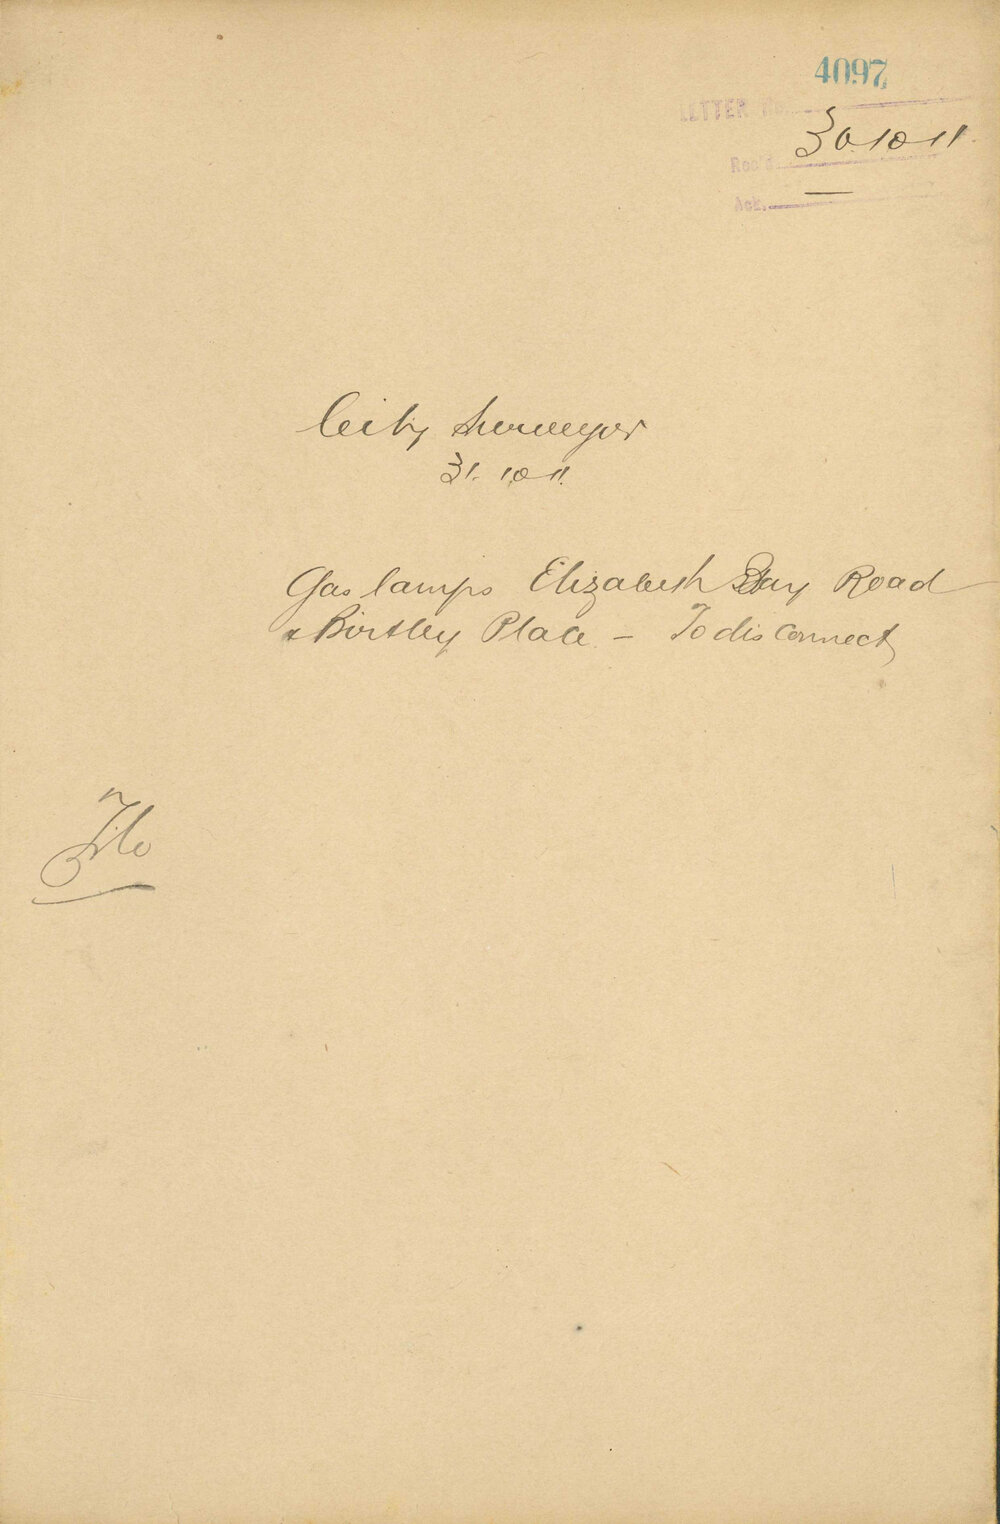 4097
LETTER No.
Rec'd. 30.10.11.
Ack. —
City Surveyor
31.10.11.
Gas lamps Elizabeth Bay Road
& Birtley Place – To disconnect
File